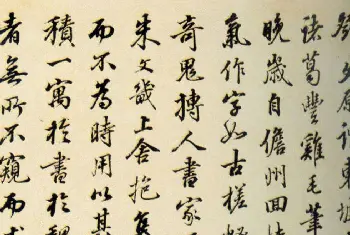 文原評東坡
葛豐雞毛筆
晚歲自儋州回
氣作字如古槎
奇鬼搏人書家
朱文幾上舍抱
而不為時用以其
積一寓於書於
者無所不窺而